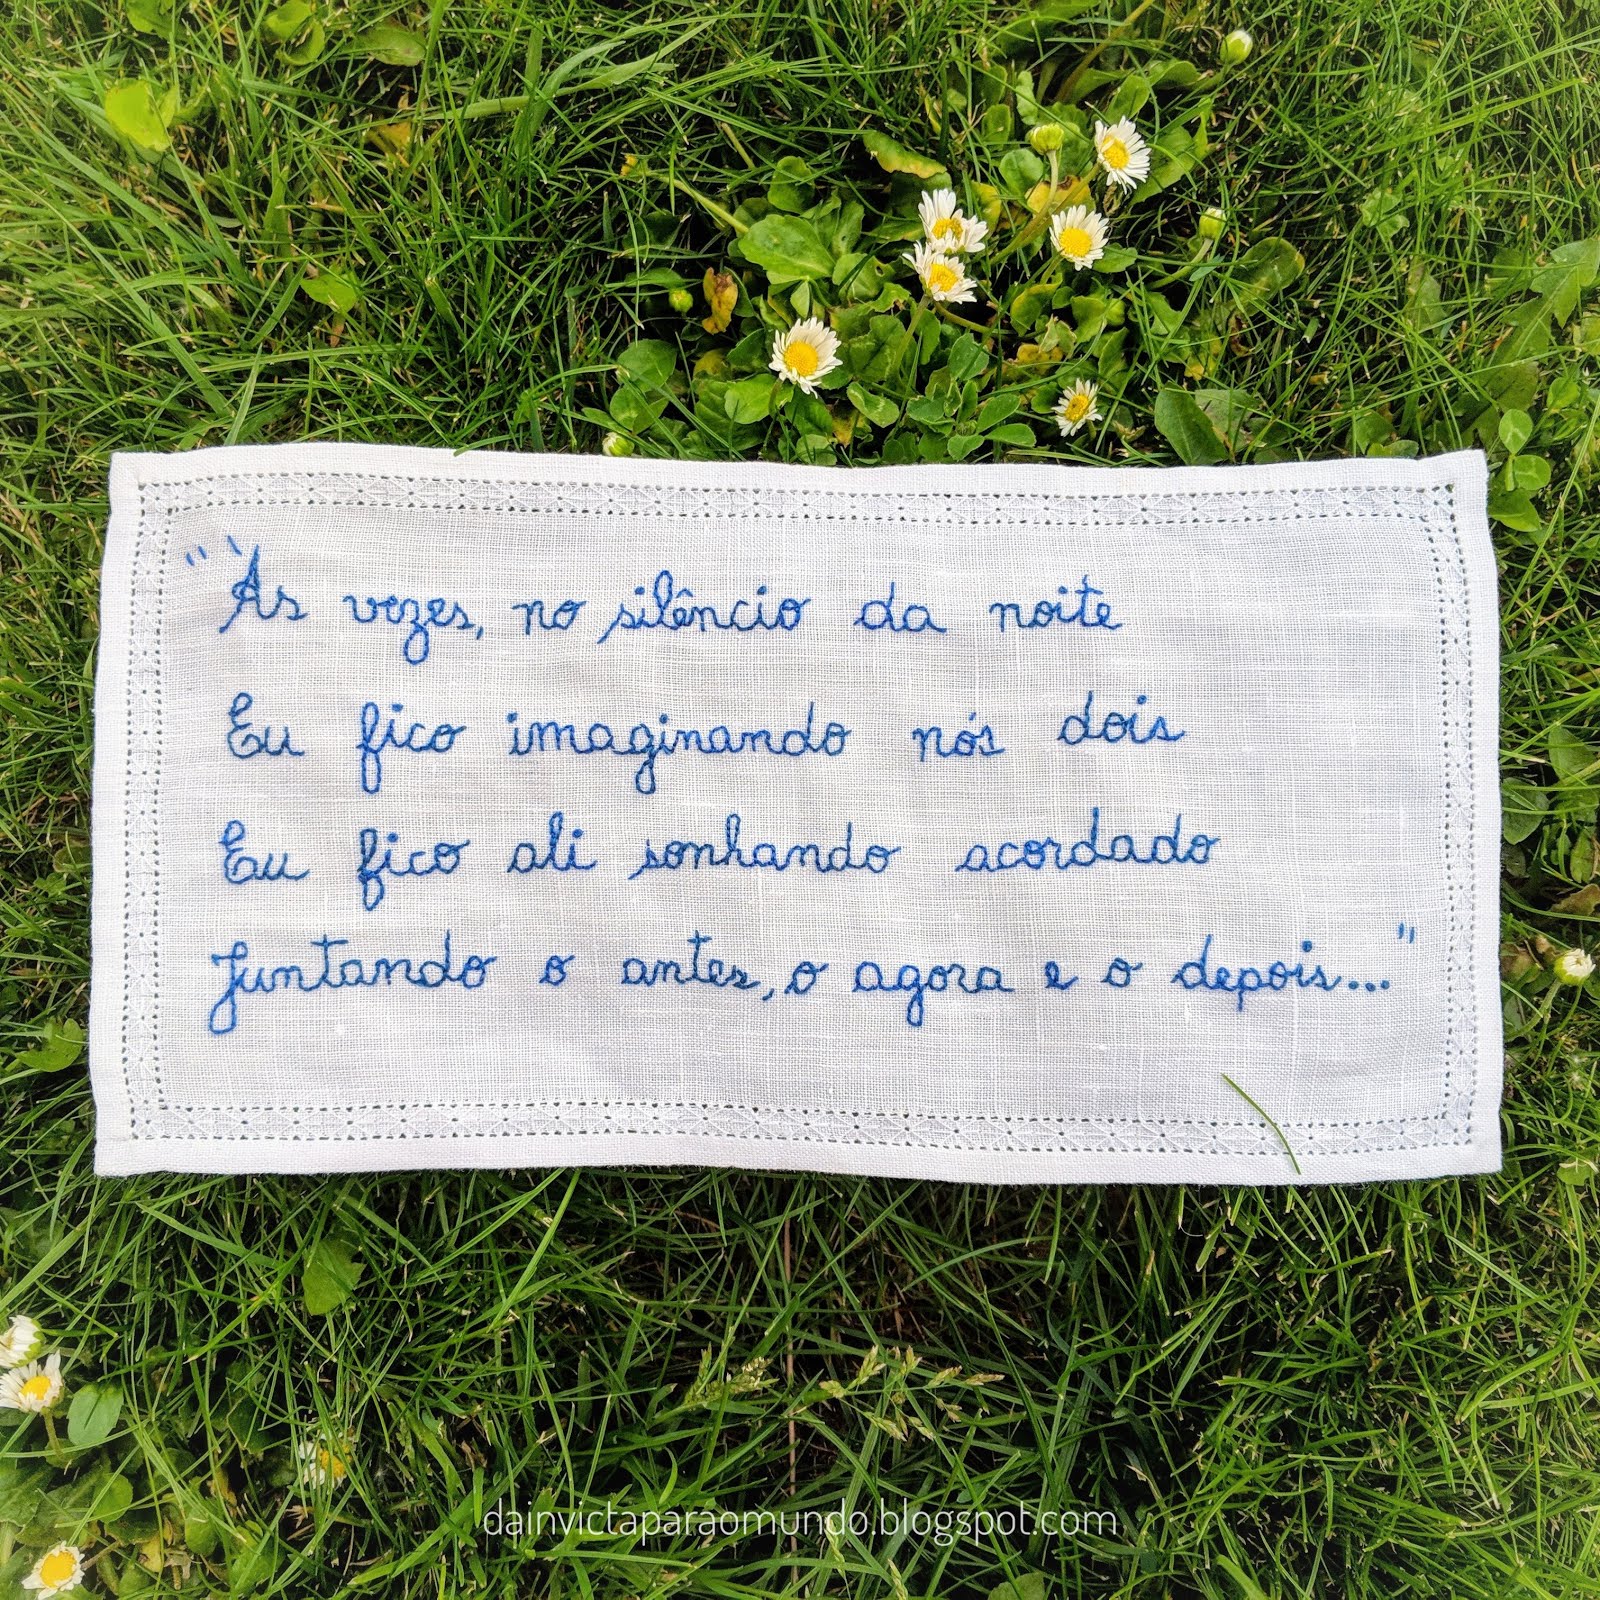 "Às vezes, no silêncio da noite
Eu fico imaginando nós dois
Eu fico ali sonhando acordado
Juntando o antes, o agora e o depois..."
dainvictaparaomundo.blogspot.com